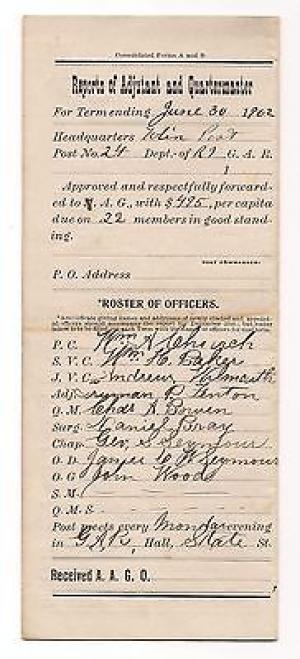 Consolidated Forms A and B
Reports of Adjutant and Quartermaster
For Term ending June 30 1902
Headquarters Post
Post No. 24 Dept. of RI G. A. R.
Approved and respectfully forward-
ed to A. A. G., with $ 495, per capita
due on 22 members in good stand-
ing.
Post Commander.
P. O. Address
*ROSTER OF OFFICERS.
P. C. Wm A
S. V. C. Wm H. Baker
J. V. C. Andrew
Adj. B
Q. M. Chas A Bowen
Surg. Daniel Bray
Chap. Geo S Seymour
O. D. James W Seymour
O. G John Woods
S. M.
Q. M. S.
Post meets every Monday evening
in G A R, Hall, State St.
Received A. A. G. O.